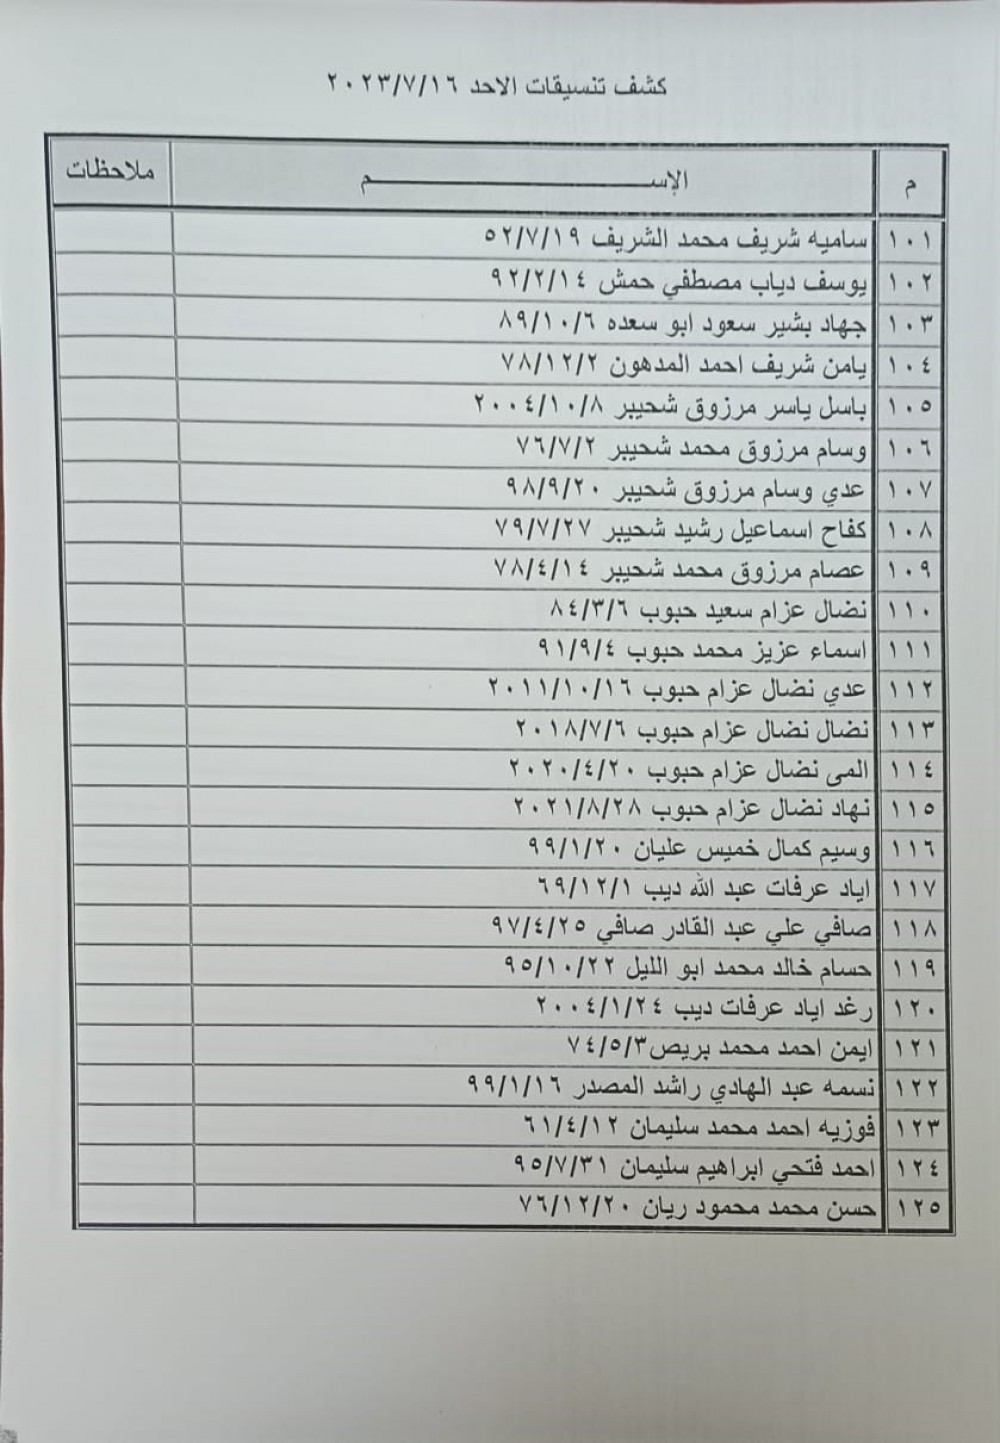 كشف تنسيقات الاحد ٢٠٢٣/٧/١٦
م الإســــــم ملاحظات
١٠١ ساميه شريف محمد الشريف ٥٢/٧/١٩
١٠٢ يوسف دياب مصطفي حمش ٩٢/٢/١٤
١٠٣ جهاد بشير سعود ابو سعده ٨٩/١٠/٦
١٠٤ يامن شريف احمد المدهون ٧٨/١٢/٢
١٠٥ باسل ياسر مرزوق شحيبر ٢٠٠٤/١٠/٨
١٠٦ وسام مرزوق محمد شحيبر ٧٦/٧/٢
١٠٧ عدي وسام مرزوق شحيبر ٩٨/٩/٢٠
١٠٨ كفاح اسماعيل رشيد شحيبر ٧٩/٧/٢٧
١٠٩ عصام مرزوق محمد شحيبر ٧٨/٤/١٤
١١٠ نضال عزام سعيد حبوب ٨٤/٣/٦
١١١ اسماء عزيز محمد حبوب ٩١/٩/٤
١١٢ عدي نضال عزام حبوب ٢٠١١/١٠/١٦
١١٣ نضال نضال عزام حبوب ٢٠١٨/٧/٦
١١٤ المى نضال عزام حبوب ٢٠٢٠/٤/٢٠
١١٥ نهاد نضال عزام حبوب ٢٠٢١/٨/٢٨
١١٦ وسيم كمال خميس عليان ٩٩/١/٢٠
١١٧ اياد عرفات عبد الله ديب ٦٩/١٢/١
١١٨ صافي علي عبد القادر صافي ٩٧/٤/٢٥
١١٩ حسام خالد محمد ابو الليل ٩٥/١٠/٢٢
١٢٠ رغد اياد عرفات ديب ٢٠٠٤/١/٢٤
١٢١ ايمن احمد محمد بريص٧٤/٥/٣
١٢٢ نسمه عبد الهادي راشد المصدر ٩٩/١/١٦
١٢٣ فوزيه احمد محمد سليمان ٦١/٤/١٢
١٢٤ احمد فتحي ابراهيم سليمان ٩٥/٧/٣١
١٢٥ حسن محمد محمود ريان ٧٦/١٢/٢٠